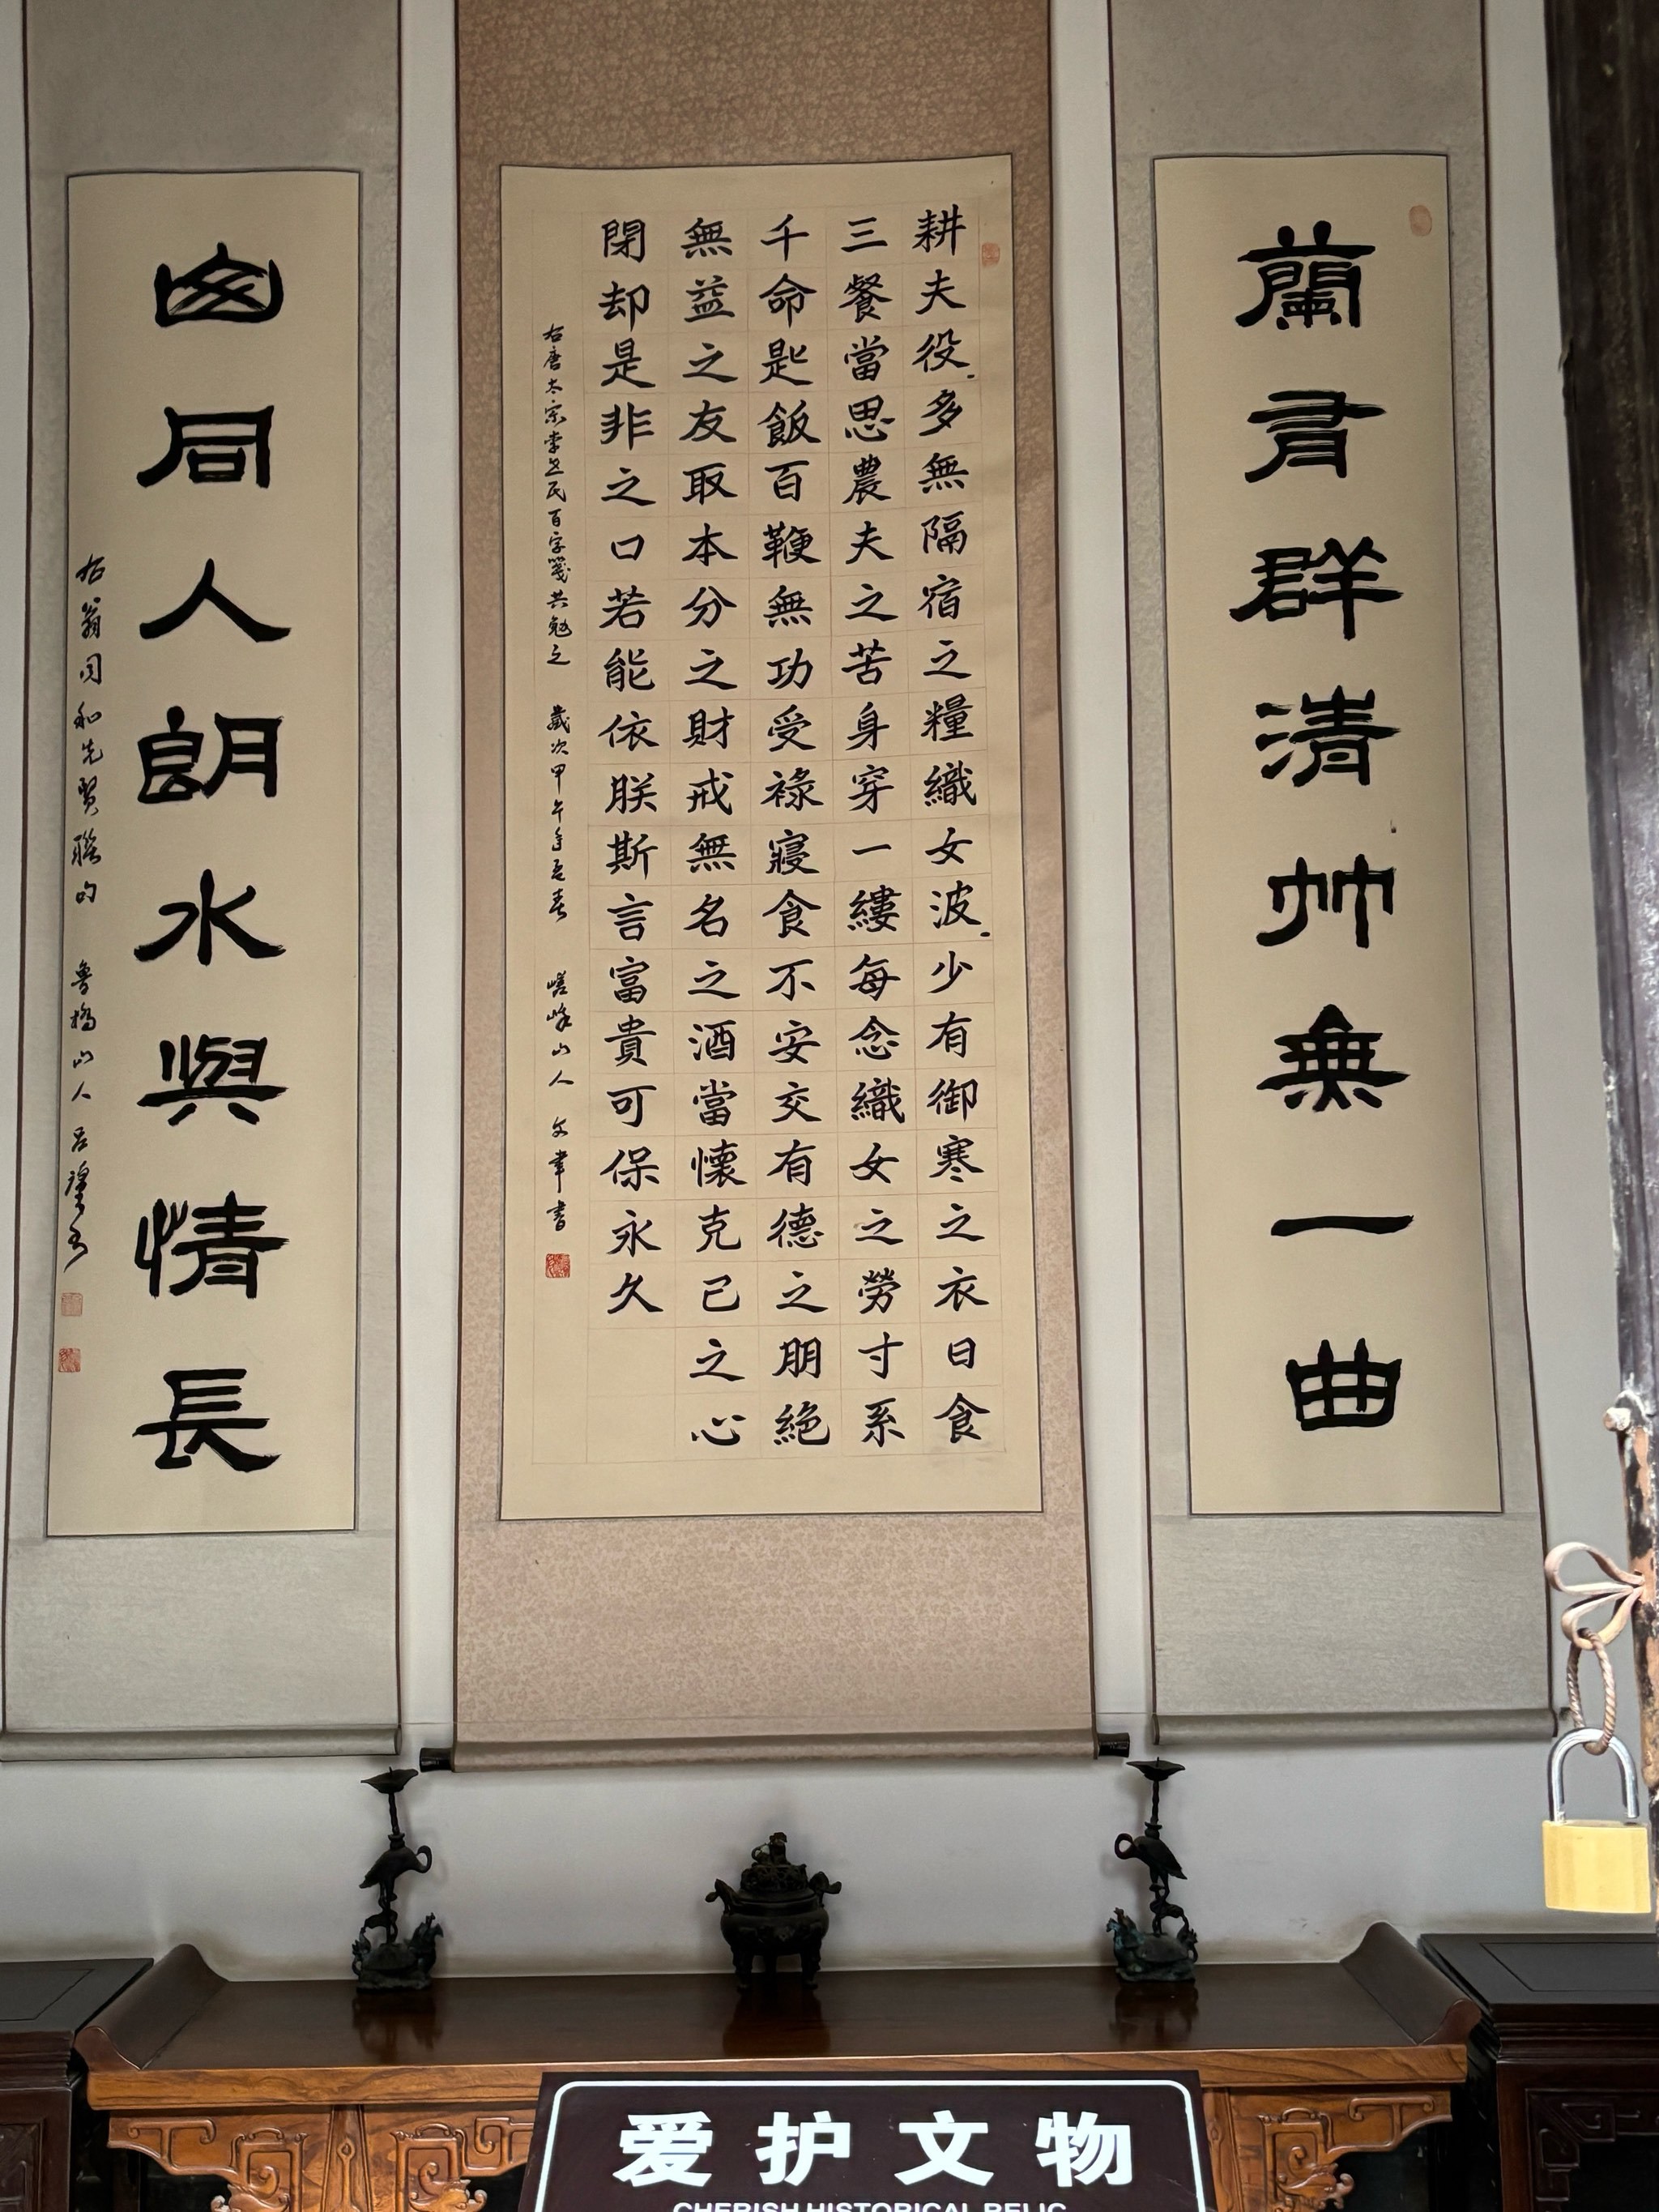 蘭有群清竹無一曲
耕夫役多無隔宿之糧織女波少有御寒之衣日食
三餐當思農夫之苦身穿一縷每念織女之勞寸系
千命匙飯百鞭無功受祿寢食不安交有德之朋絕
無益之友取本分之財戒無名之酒當懷克己之心
閉却是非之口若能依朕斯言富貴可保永久
右唐太宗李世民百字箋共勉之 歲次甲午年孟春 嵯峰山人 書
山同人朗水與情長
右翁同和先賢聯句 魯橋山人 呂
爱护文物
CHERISH HISTORICAL RELIC